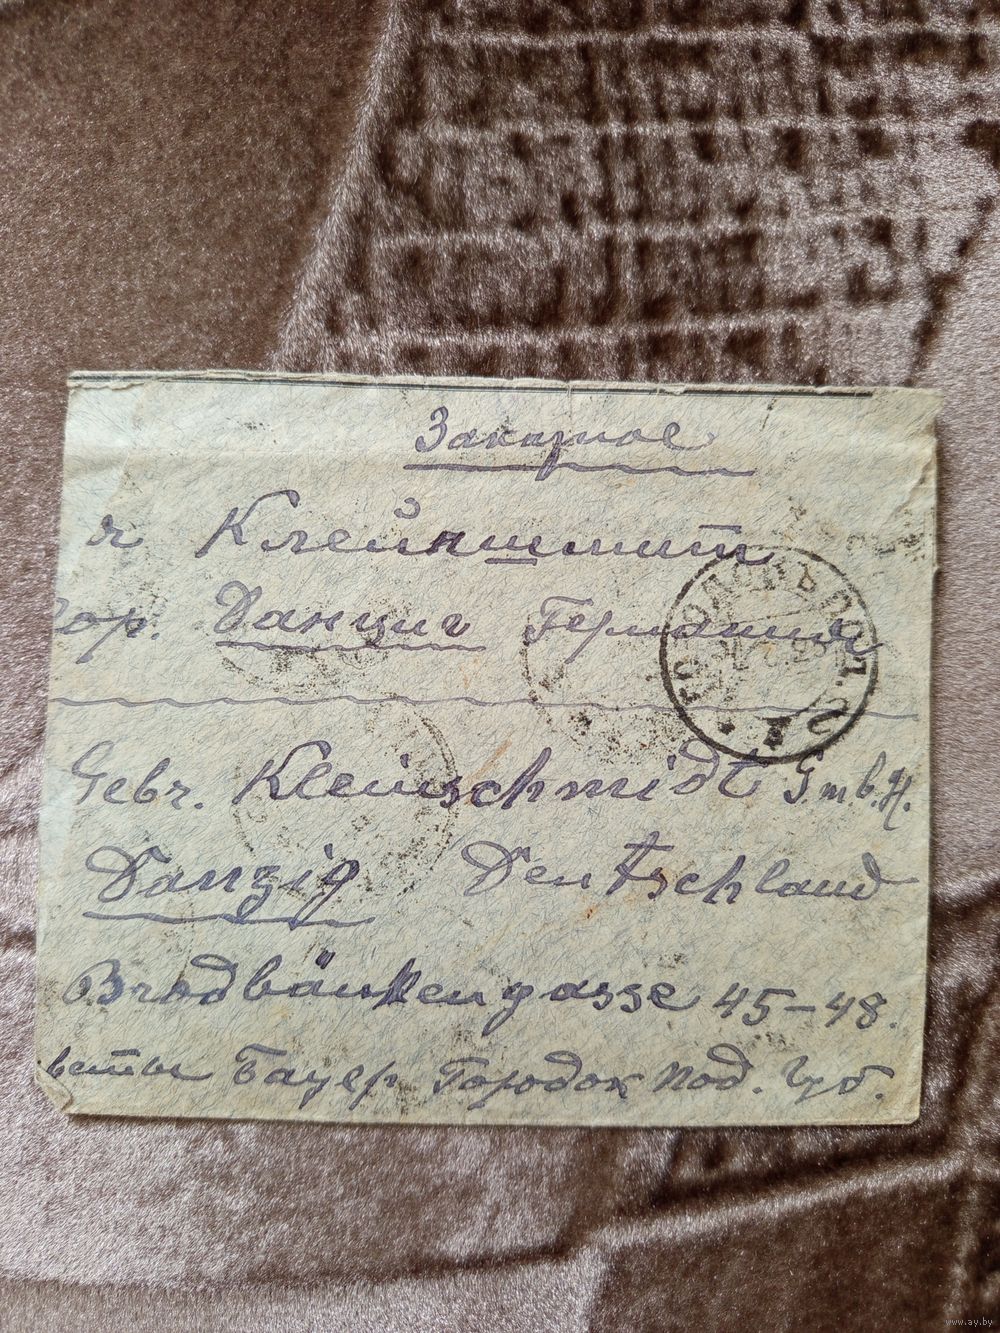 Заказное
я Клейншмит
гор. Данциг Германия
ГОРОДОКЪ ПОД.
Gebr. Kleinschmidt G.m.b.H.
Danzig Deutschland
Brodbänkengasse 45-48.
Бауер Городок Под. Губ.
www.ay.by